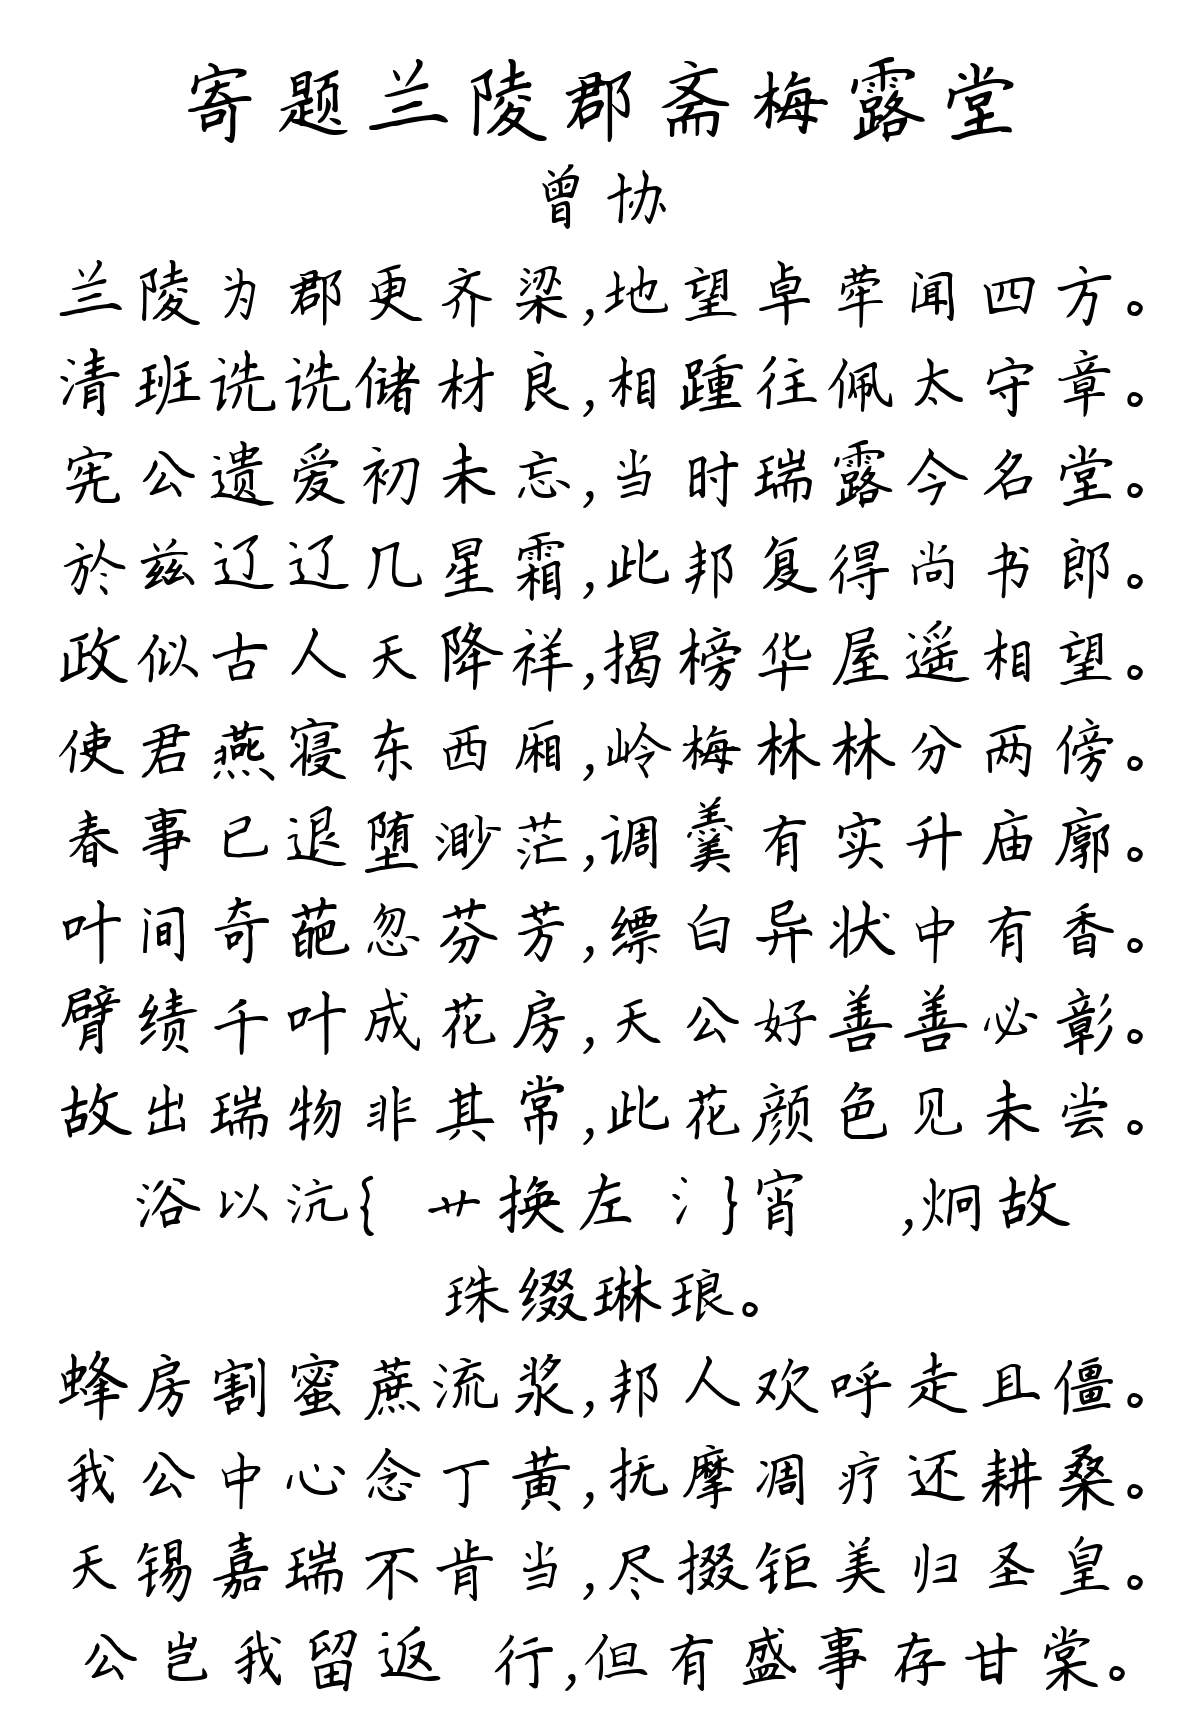 寄题兰陵郡斋梅露堂
曾协
兰陵为郡更齐梁,地望卓荦闻四方。
清班诜诜储材良,相踵往佩太守章。
宪公遗爱初未忘,当时瑞露今名堂。
於兹辽辽几星霜,此邦复得尚书郎。
政似古人天降祥,揭榜华屋遥相望。
使君燕寝东西厢,岭梅林林分两傍。
春事已退堕渺茫,调羹有实升庙廊。
叶间奇葩忽芬芳,缥白异状中有香。
臂绩千叶成花房,天公好善善必彰。
故出瑞物非其常,此花颜色见未尝。
浴以沆{艹换左氵}宵 ,炯故
珠缀琳琅。
蜂房割蜜蔗流浆,邦人欢呼走且僵。
我公中心念丁黄,抚摩凋疗还耕桑。
天锡嘉瑞不肯当,尽掇钜美归圣皇。
公岂我留返 行,但有盛事存甘棠。